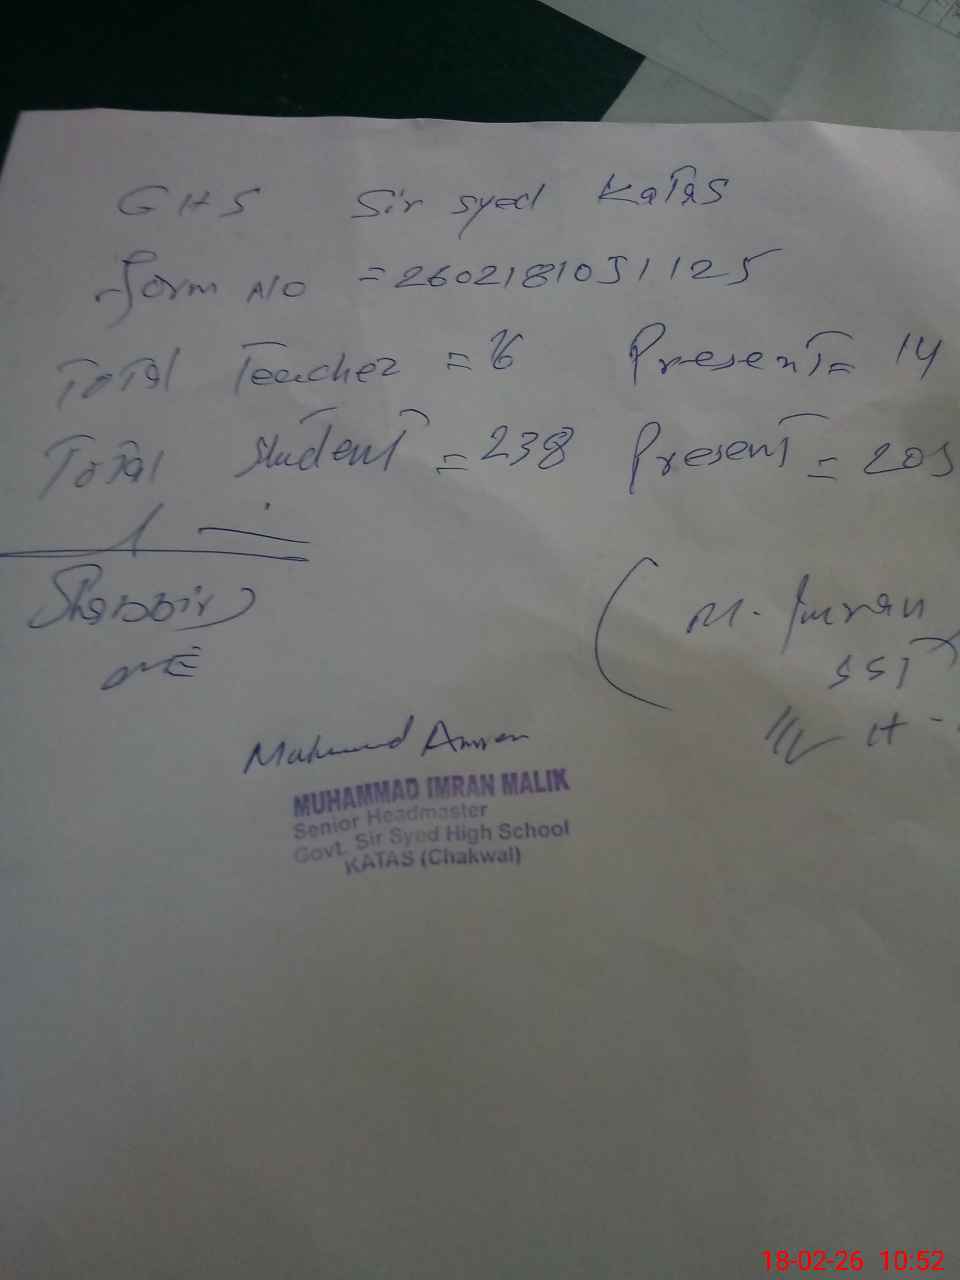 GHS Sir Syed Katas
Form No = 2602181031125
Total Teacher = 16 Present = 14
Total Student = 238 Present = 205
Shabbir
M. Imran
SST
MUHAMMAD IMRAN MALIK
Senior Headmaster
Govt. Sir Syed High School
KATAS (Chakwal)
18-02-26 10:52